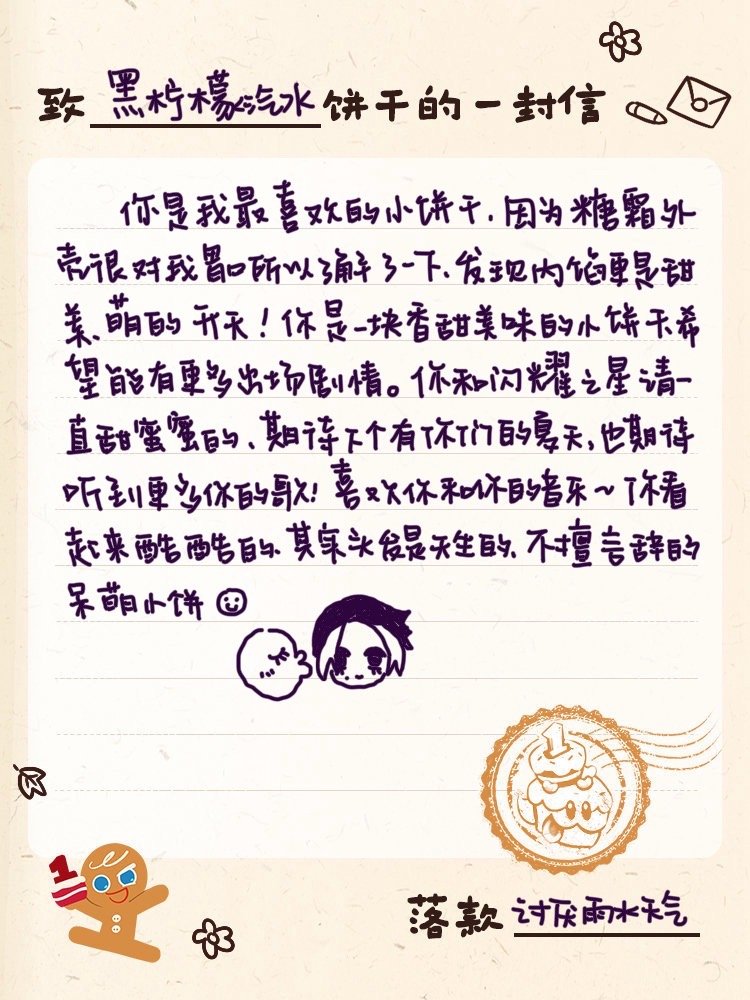 致 黑柠檬汽水 饼干的一封信
你是我最喜欢的小饼干,因为糖霜外
壳很对我胃口所以了解了一下,发现内馅更是甜
美、萌的 开天!你是一块香甜美味的小饼干,希
望能有更多出场剧情。你和闪耀之星请一
直甜蜜蜜的、期待下个有你们的夏天,也期待
听到更多你的歌!喜欢你和你的音乐~你看
起来酷酷的、其实头发是天生的,不擅言辞的
呆萌小饼
1
1
落款 讨厌雨水天气